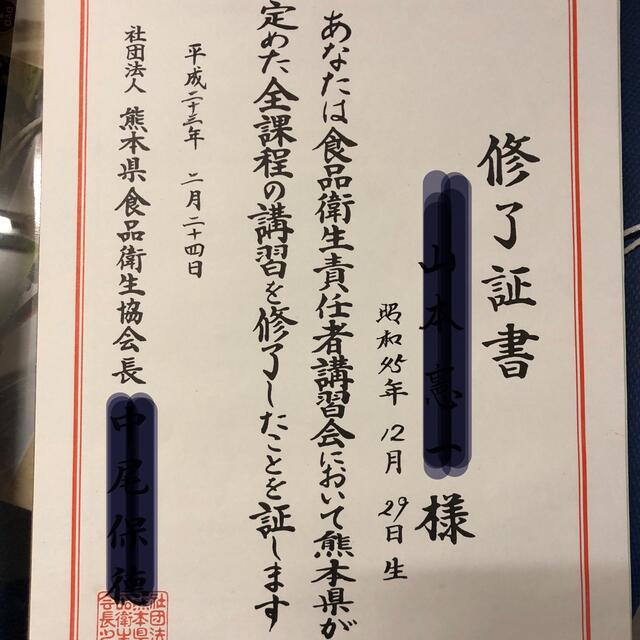 修了証書
様
昭和45年12月29日生
あなたは食品衛生責任者講習会において熊本県が
定めた全課程の講習を修了したことを証します
平成二十三年 二月二十四日
社団法人 熊本県食品衛生協会長
社団法
熊本県
品衛生